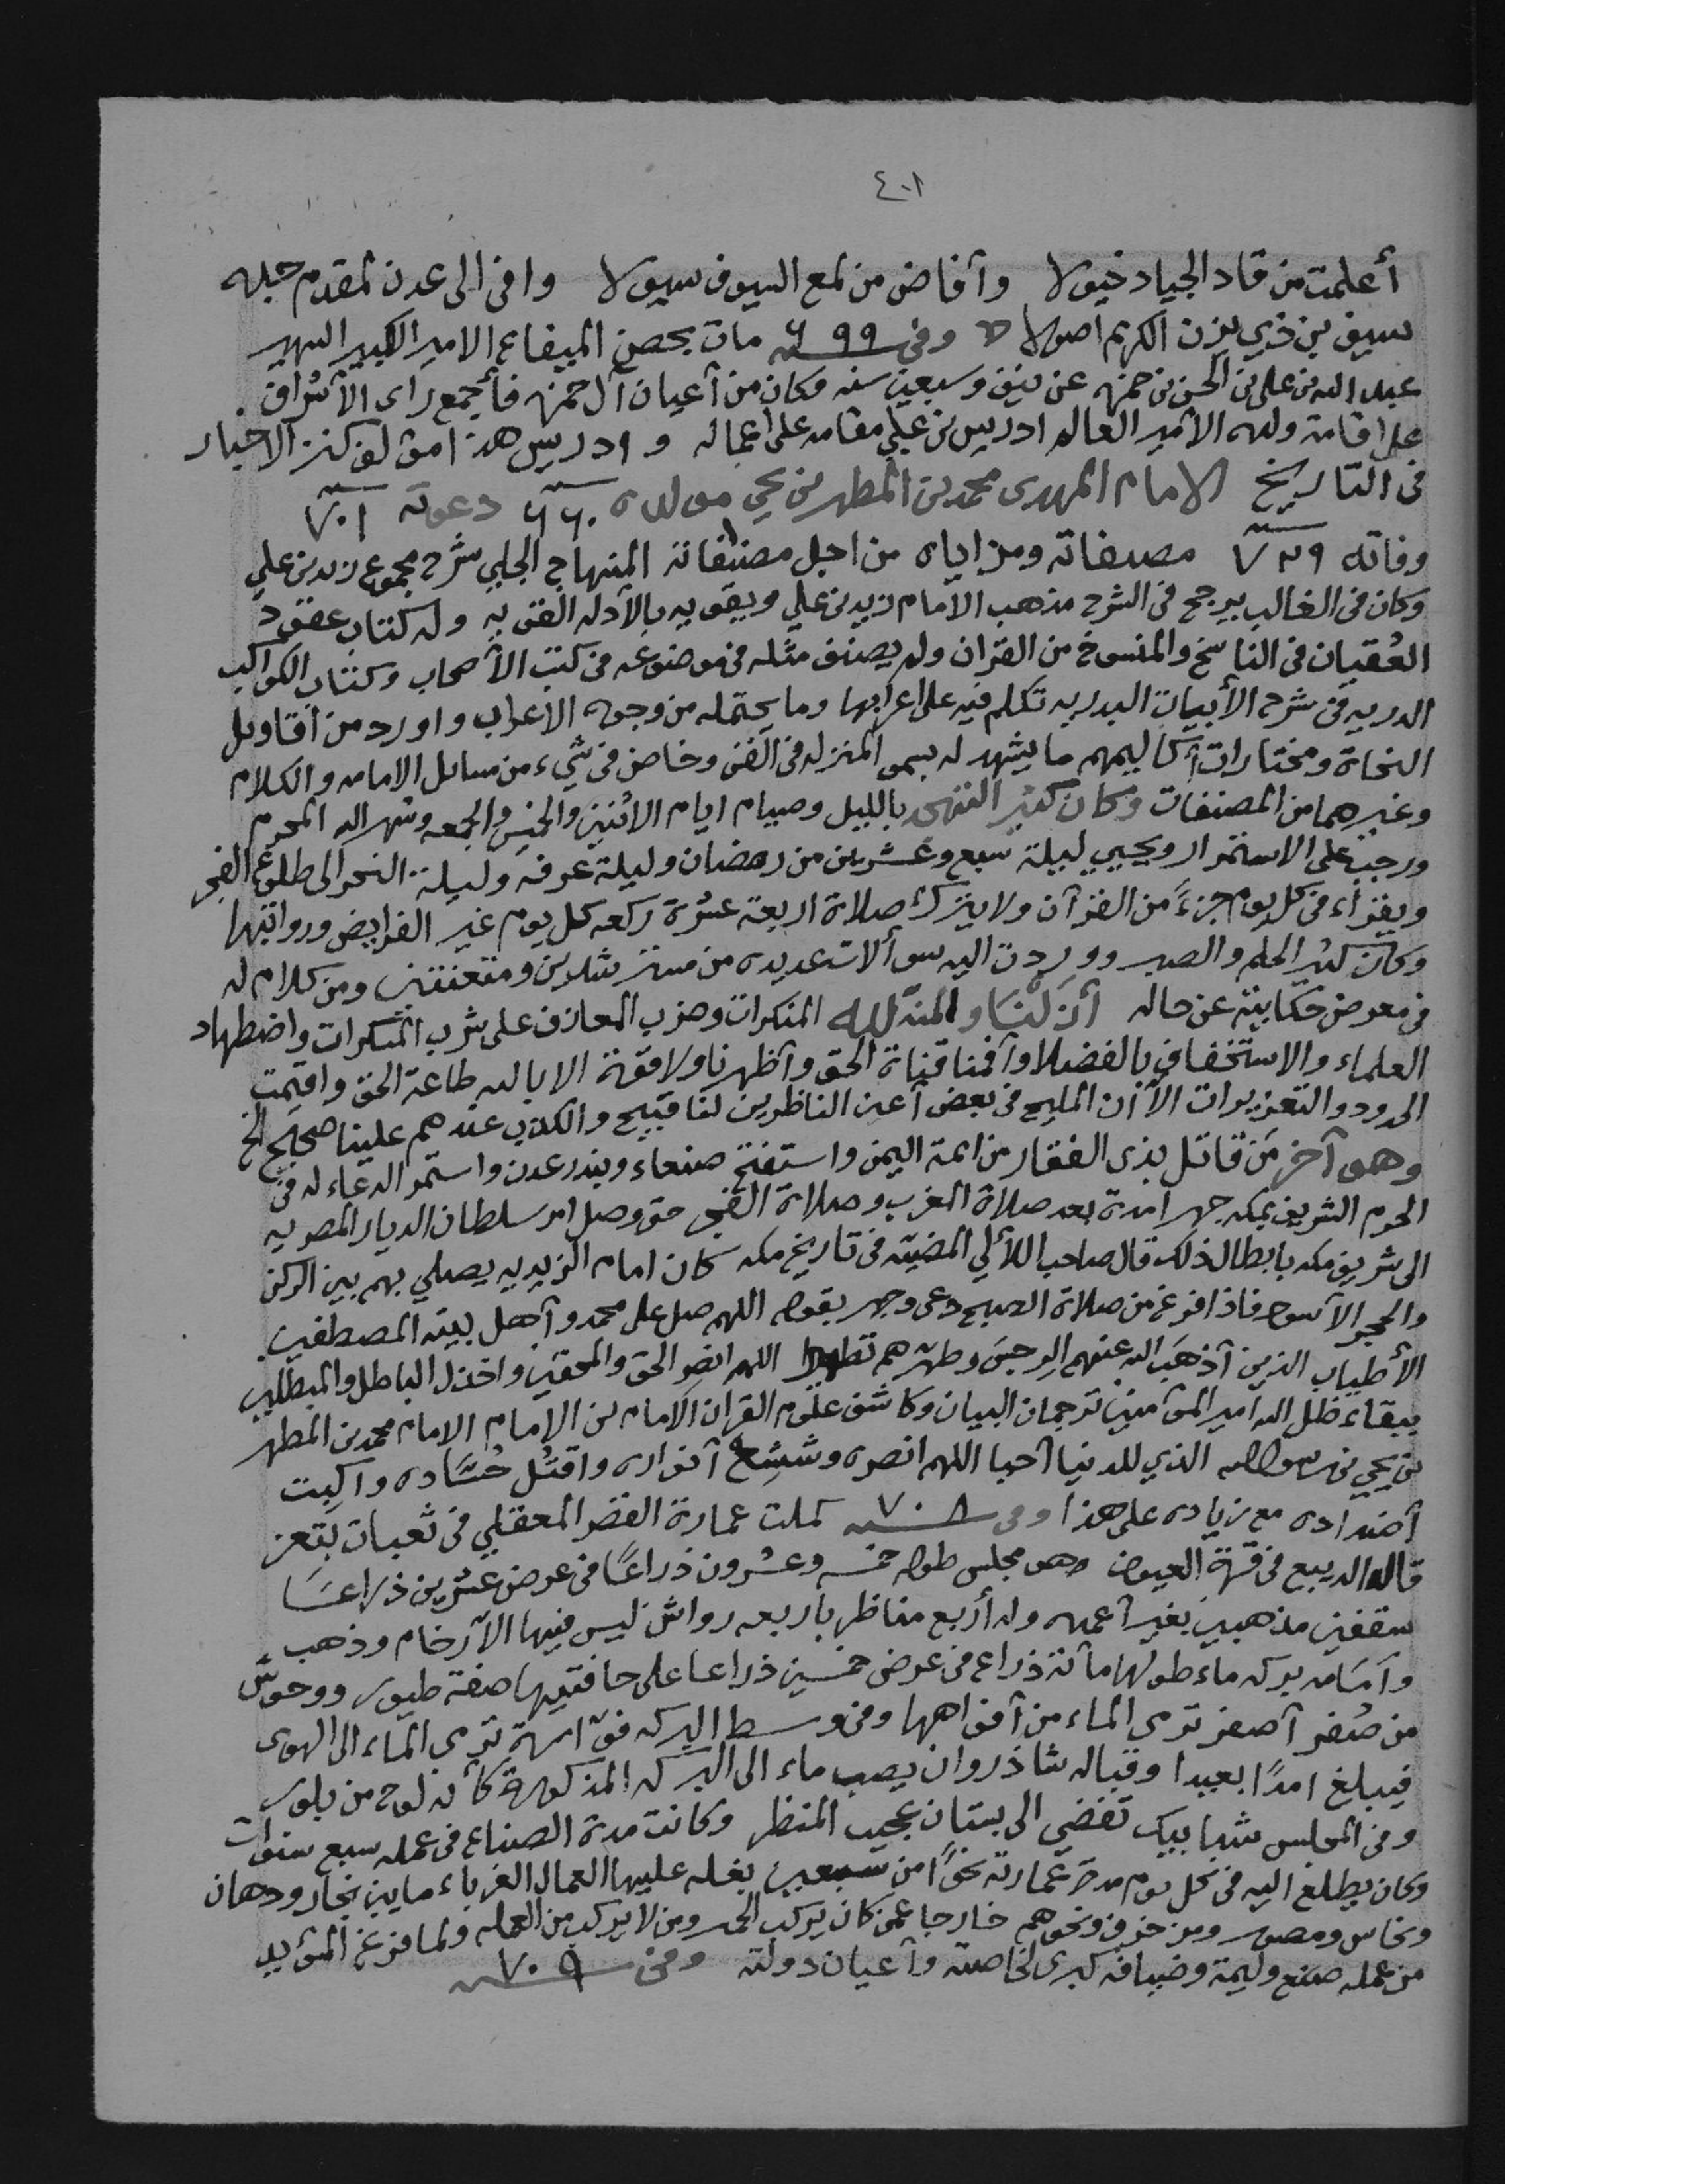 ٤٠١
أعلمت من قاد الجياد خيولا وأفاض من لمع السيوف سيولا وافى الى عدن لمقدم جبله
سيف بن ذي يزن الكريم اصولا وفي سنه ٦٩٩ مات بحصن الميفاع الامير الكبير الشهير
عبدالله بن علي بن الحسن بن حمزه عن نيف وسبعين سنه وكان من أعيان آل حمزه فأجمع راى الأشراف
على اقامة ولده الأمير العالم ادريس بن علي مقامه على اعماله وادريس هذا مؤلف كنز الاخيار
في التاريخ الامام المهدى محمد بن المطهر بن يحي مولده ٦٦٠ دعوته ٧٠١
وفاته ٧٢٩ مصنفاته ومزاياه من اجل مصنفاته المنهاج الجلي شرح مجموع زيد بن علي
وكان في الغالب يرجح في الشرح مذهب الامام زيد بن علي ويقويه بالأدله القويه وله كتاب عقود
العُقيان في الناسخ والمنسوخ من القران ولم يصنف مثله في موضوعه في كتب الأصحاب وكتاب الكواكب
الدريه في شرح الأبيات البدريه تكلم فيه على اعرابها وما يحتمله من وجوه الاعراب واورد من أقاويل
النحاة ومختارات أكاليمهم ما يشهد له بسمو المنزله في الفن وخاض في شيء من مسائل الامامه والكلام
وغيرهما من المصنفات وكان كثير التهجد بالليل وصيام ايام الاثنين والخيس والجمعه وشهر الله المحرم
ورجب على الاستمرار ويحيي ليلة سبع وعشرين من رمضان وليلة عرفه وليلة النحر الى طلوع الفجر
ويقرأ في كل يوم جزءً من القرآن ولا يترك صلاة اربعة عشرة ركعه كل يوم غير الفرايض ورواتبها
وكان كثير الحلم والصبر ووردت اليه سوألات عديده من مسترشدين ومتعنتين ومن كلام له
في معرض حكايته عن حاله أزلنا والمنة لله المنكرات وضرب المعازف على شرب المسكرات واضطهاد
العلماء والاستخفاف بالفضلا وأقمنا قناة الحق وأظهرنا ولا قوة الا بالله طاعة الحق واقيمت
الحدود والتعزيرات الا أن المليح في بعض أعين الناظرين لنا قبيح والكذب عندهم علينا صحيح الخ
وهو آخر من قاتل بذى الفقار من ائمة اليمن واستفتح صنعاء وبندر عدن واستمر الدعاء له في
الحرم الشريف بمكه جهرا مدة بعد صلاة المغرب وصلاة الفجر حتى وصل امر سلطان الديار المصريه
الى شريف مكه بابطال ذلك قال صاحب اللألي المضيئه في تاريخ مكه كان امام الزيديه يصلي بهم بين الركن
والحجر الأسود فاذا فرغ من صلاة الصبح دعى وجهر بقوله اللهم صل على محمد وأهل بيته المصطفين
الأطياب الذين أذهب الله عنهم الرجس وطهرهم تطهيرا اللهم انصر الحق والمحقين واخذل الباطل والمبطلين
ببقاء ظل الله امير المؤمنين ترجمان البيان وكاشف علوم القران الامام بن الامام الامام محمد بن المطهر
بن يحيي بن رسول الله الذي للدنيا أحيا اللهم انصره وشعشع أنواره واقتُل حُسّاده واكبت
أضداده مع زياده على هذا وفي سنه ٧٠٨ كملت عمارة القصر المعقلي في ثعبات بتعز
قال الديبع في قرة العيون وهو مجلس طوله خمسه وعشرون ذراعًا في عرض عشرين ذراعًا
سقفين مذهبين بغير أعمده وله أربع مناظر باربعه رواشن ليس فيها الا رخام وذهب
وأمامه بركه ماء طولها مائة ذراع في عرض خمسين ذراعا على حافتيها صفة طيور ووحوش
من صُفر أصفر ترمى الماء من أفواهها وفي وسط البركه فوّارة ترمى الماء الى الهوى
فيبلغ امدًا بعيدا وقباله شاذروان يصب ماء الى البركه المذكورة كأنه لوح من بلور
وفي المجلس شبابيك تفضي الى بستان عجيب المنظر وكانت مدة الصناع في عمله سبع سنوات
وكان يطلع اليه في كل يوم مدة عمارته نحوًا من سبعين بغله عليها العمال الغرباء ما بين نجار ودهان
ونحاس ومصور ومزخرف ونحوهم خارجا عمن كان يركب الحمر ومن لا يركب من العمله ولما فرغ المؤيد
من عمله صنع وليمة وضيافه كبرى لخاصته وأعيان دولته وفي سنه ٧٠٩